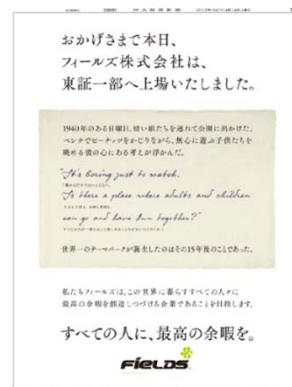 おかげさまで本日、
フィールズ株式会社は、
東証一部へ上場いたしました。
1940年のある日曜日、幼い娘たちを連れて公園に出かけた。
ベンチでピーナッツをかじりながら、無心に遊ぶ子供たちを
眺める彼の心にある考えが浮かんだ。
"It's boring just to watch.
Is there a place where adults and children
can go and have fun together?"
世界一のテーマパークが誕生したのはその15年後のことであった。
私たちフィールズは、この世界に暮らすすべての人々に
最高の余暇を創造しつづける企業であることを目指します。
すべての人に、最高の余暇を。
FIELDS